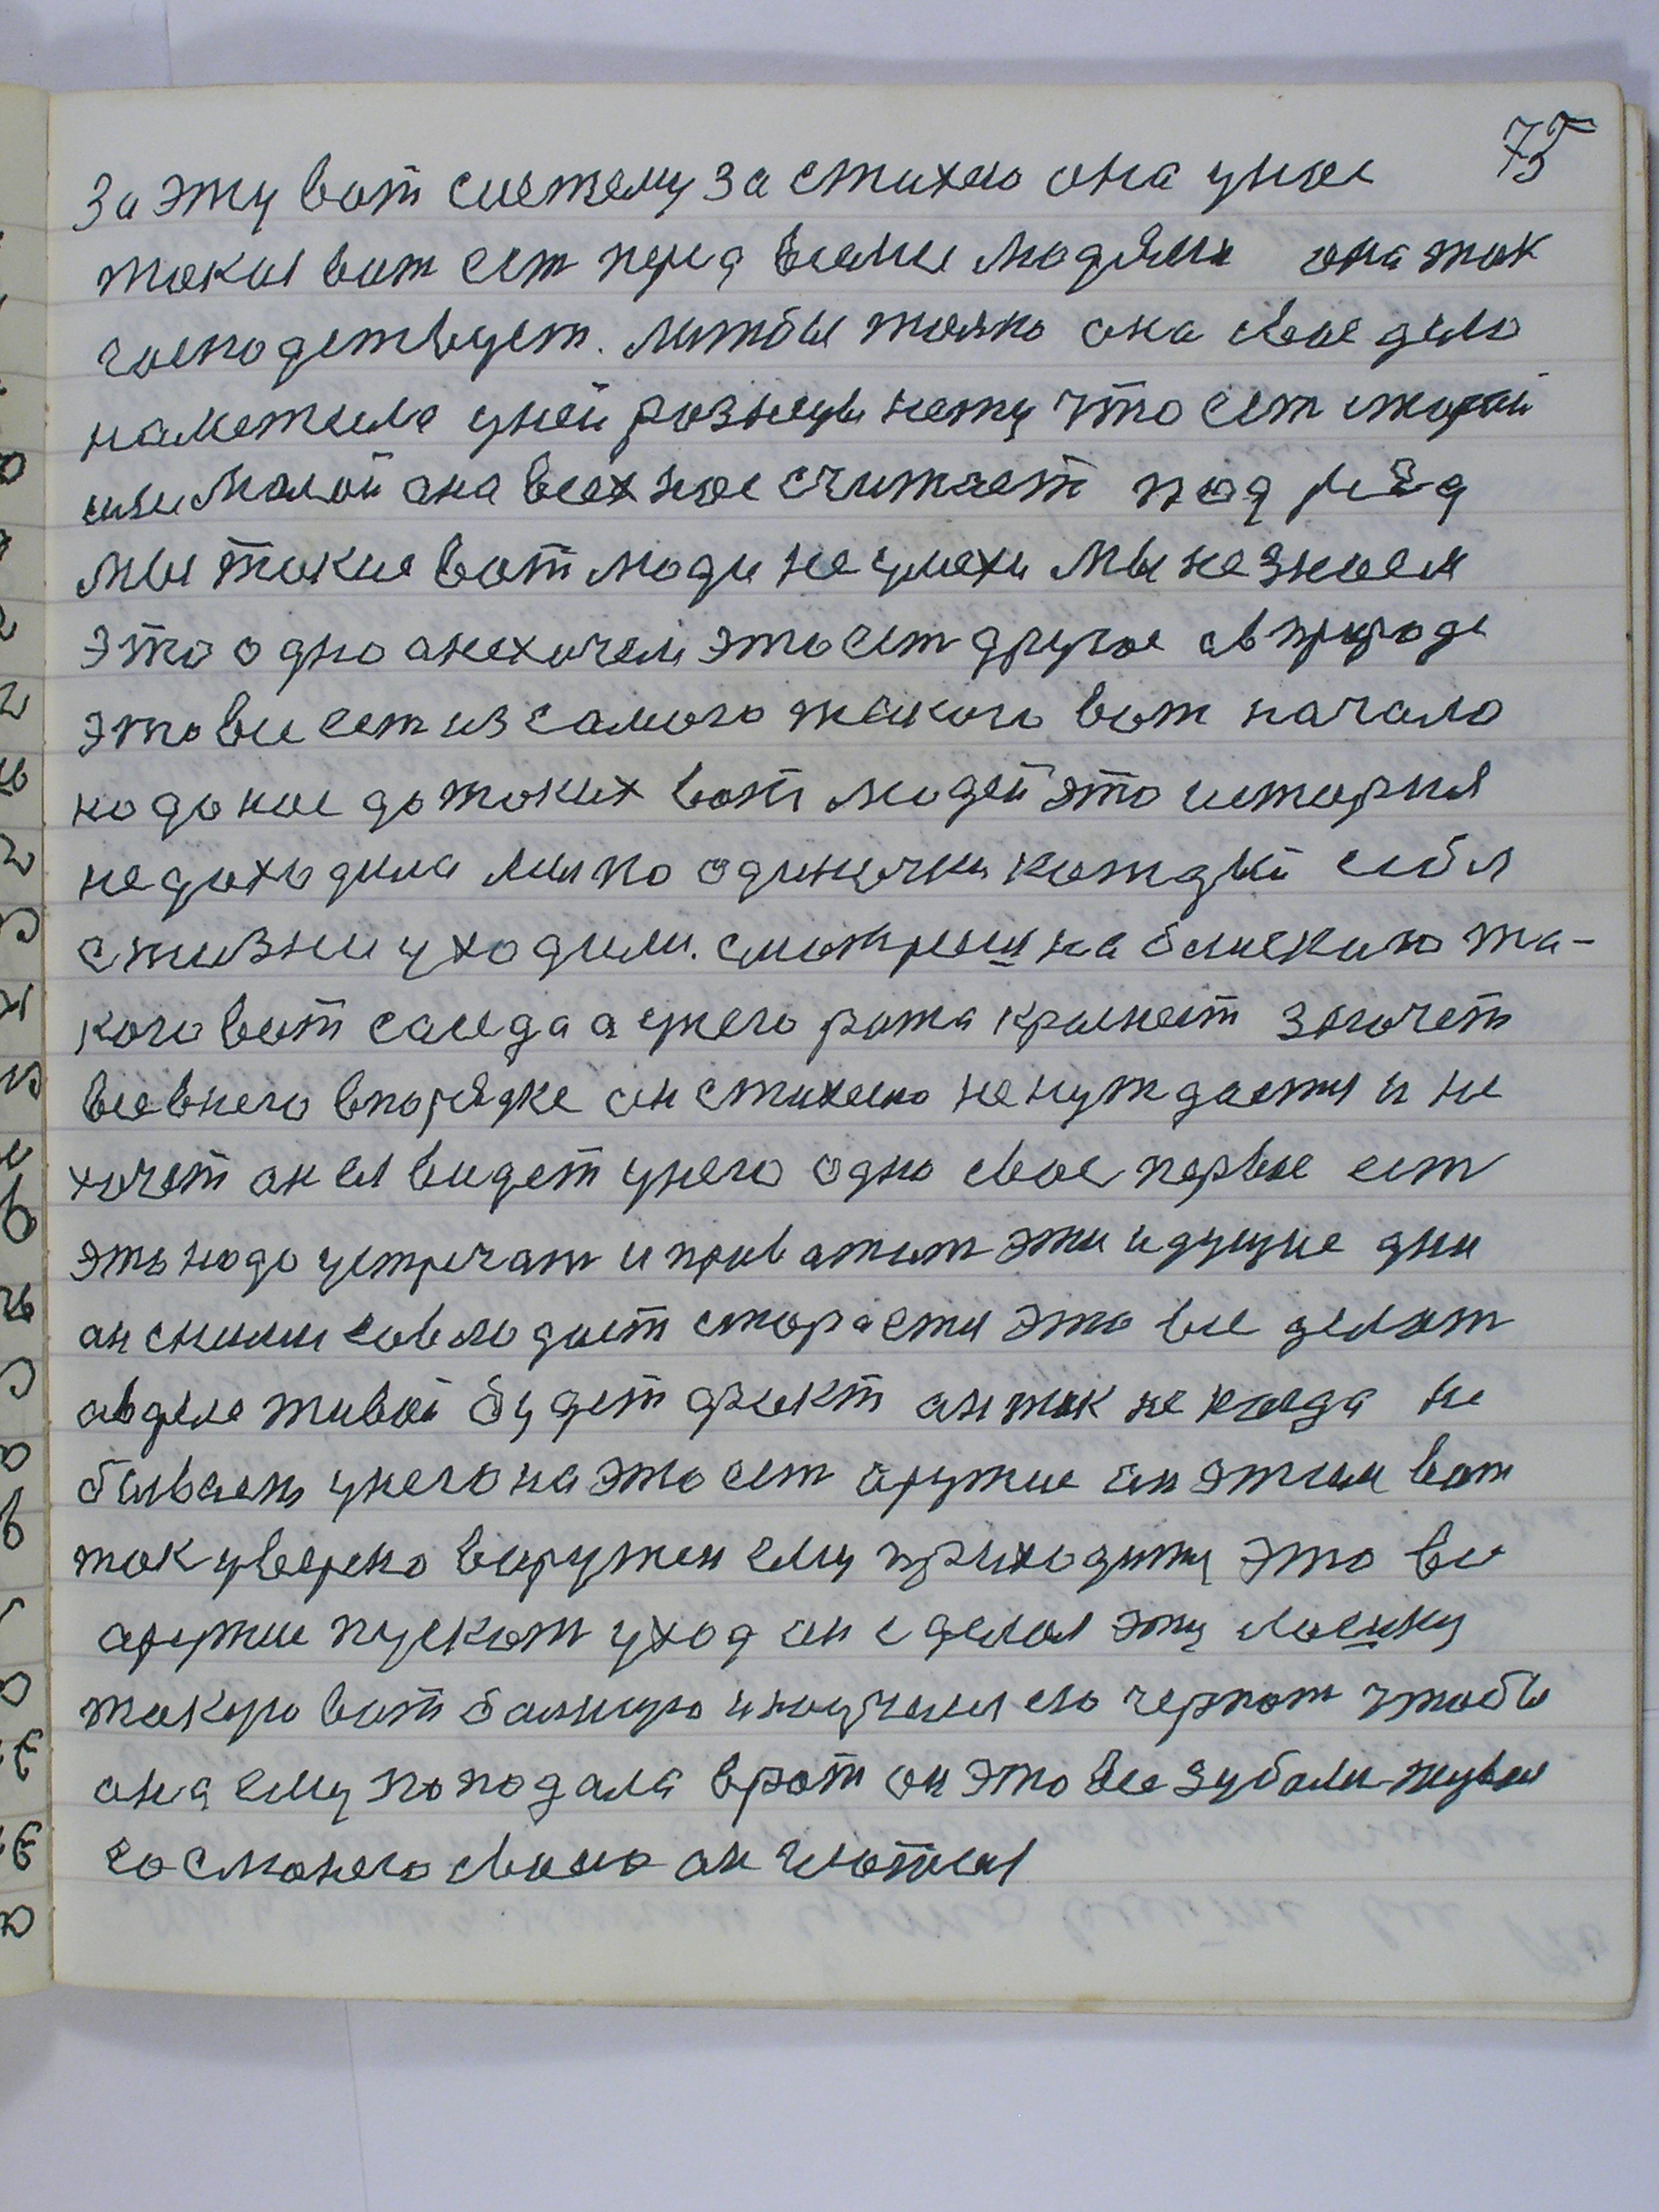 75
За эту вот систему за стихею она у нас
такия вот ест перед всеми людями она так
господствует. литбы толко она свое дело
наметила у ней разницы нету что ест старой
или малой она всех нас считает под ряд
мы такие вот люди не умехи мы не знаем
это одно а не хочем это ест другое а в природе
это все ест из самого такого вот начала
но до нас до таких вот людей это история
не доходила мы по одиначки каждый себя
с жизни уходили. смотриш на блиского та-
кого вот соседа а у него рожа краснеет значет
все в него в порядке он стихею не нуждается и не
хочет он ея видет у него одно свое первое ест
это надо устречат и проважат эти идущие дни
он с ними совлюдает старается это все делат
а в деле живой будет факт он так не когда не
бывает у него на это ест оружие он этим вот
так уверено воружен ему приходится это все
оружие пускат у ход он сделал эту ложку
такую вот балшую и научился ею черпат чтобы
она ему поподала в рот он это все зубами жувал
со сманого своею он глотал